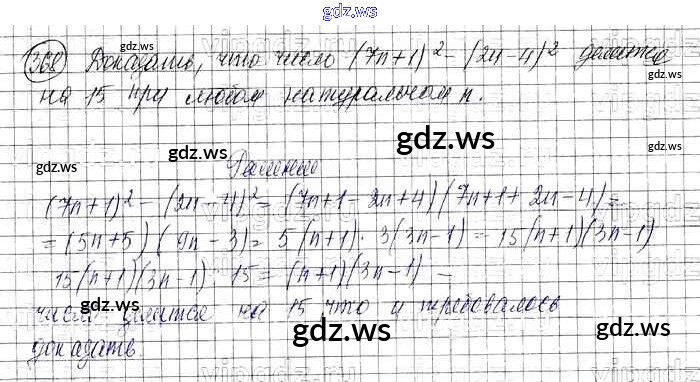 gdz.ws
368 Доказать, что число (7n+1)² - (2n-4)² делится
на 15 при любом натуральном n.
gdz.ws
Решение
(7n+1)² - (2n-4)² = (7n+1-2n+4)(7n+1+2n-4) =
= (5n+5)(9n-3) = 5(n+1)·3(3n-1) = 15(n+1)(3n-1)
15(n+1)(3n-1) : 15 = (n+1)(3n-1) -
число делится на 15 что и требовалось
доказать.
gdz.ws